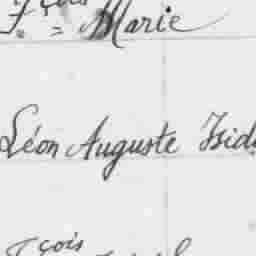 Fçois = Marie
Léon Auguste Isid
Fçois